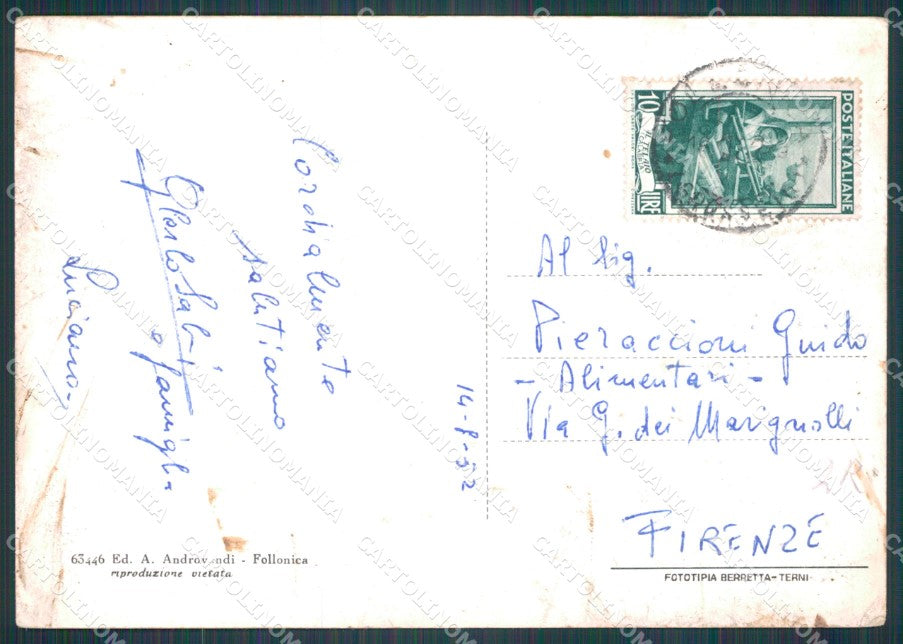 Cordialmente
salutiamo
e famiglia
Luciano
14-8-52
POSTE ITALIANE
10
LIRE
IL TELAIO
Al Sig.
Pieraccioni Guido
- Alimentari -
Via G. dei Marignolli
FIRENZE
63446 Ed. A. Androvandi - Follonica
riproduzione vietata
FOTOTIPIA BERRETTA - TERNI
CARTOLINOMANIA